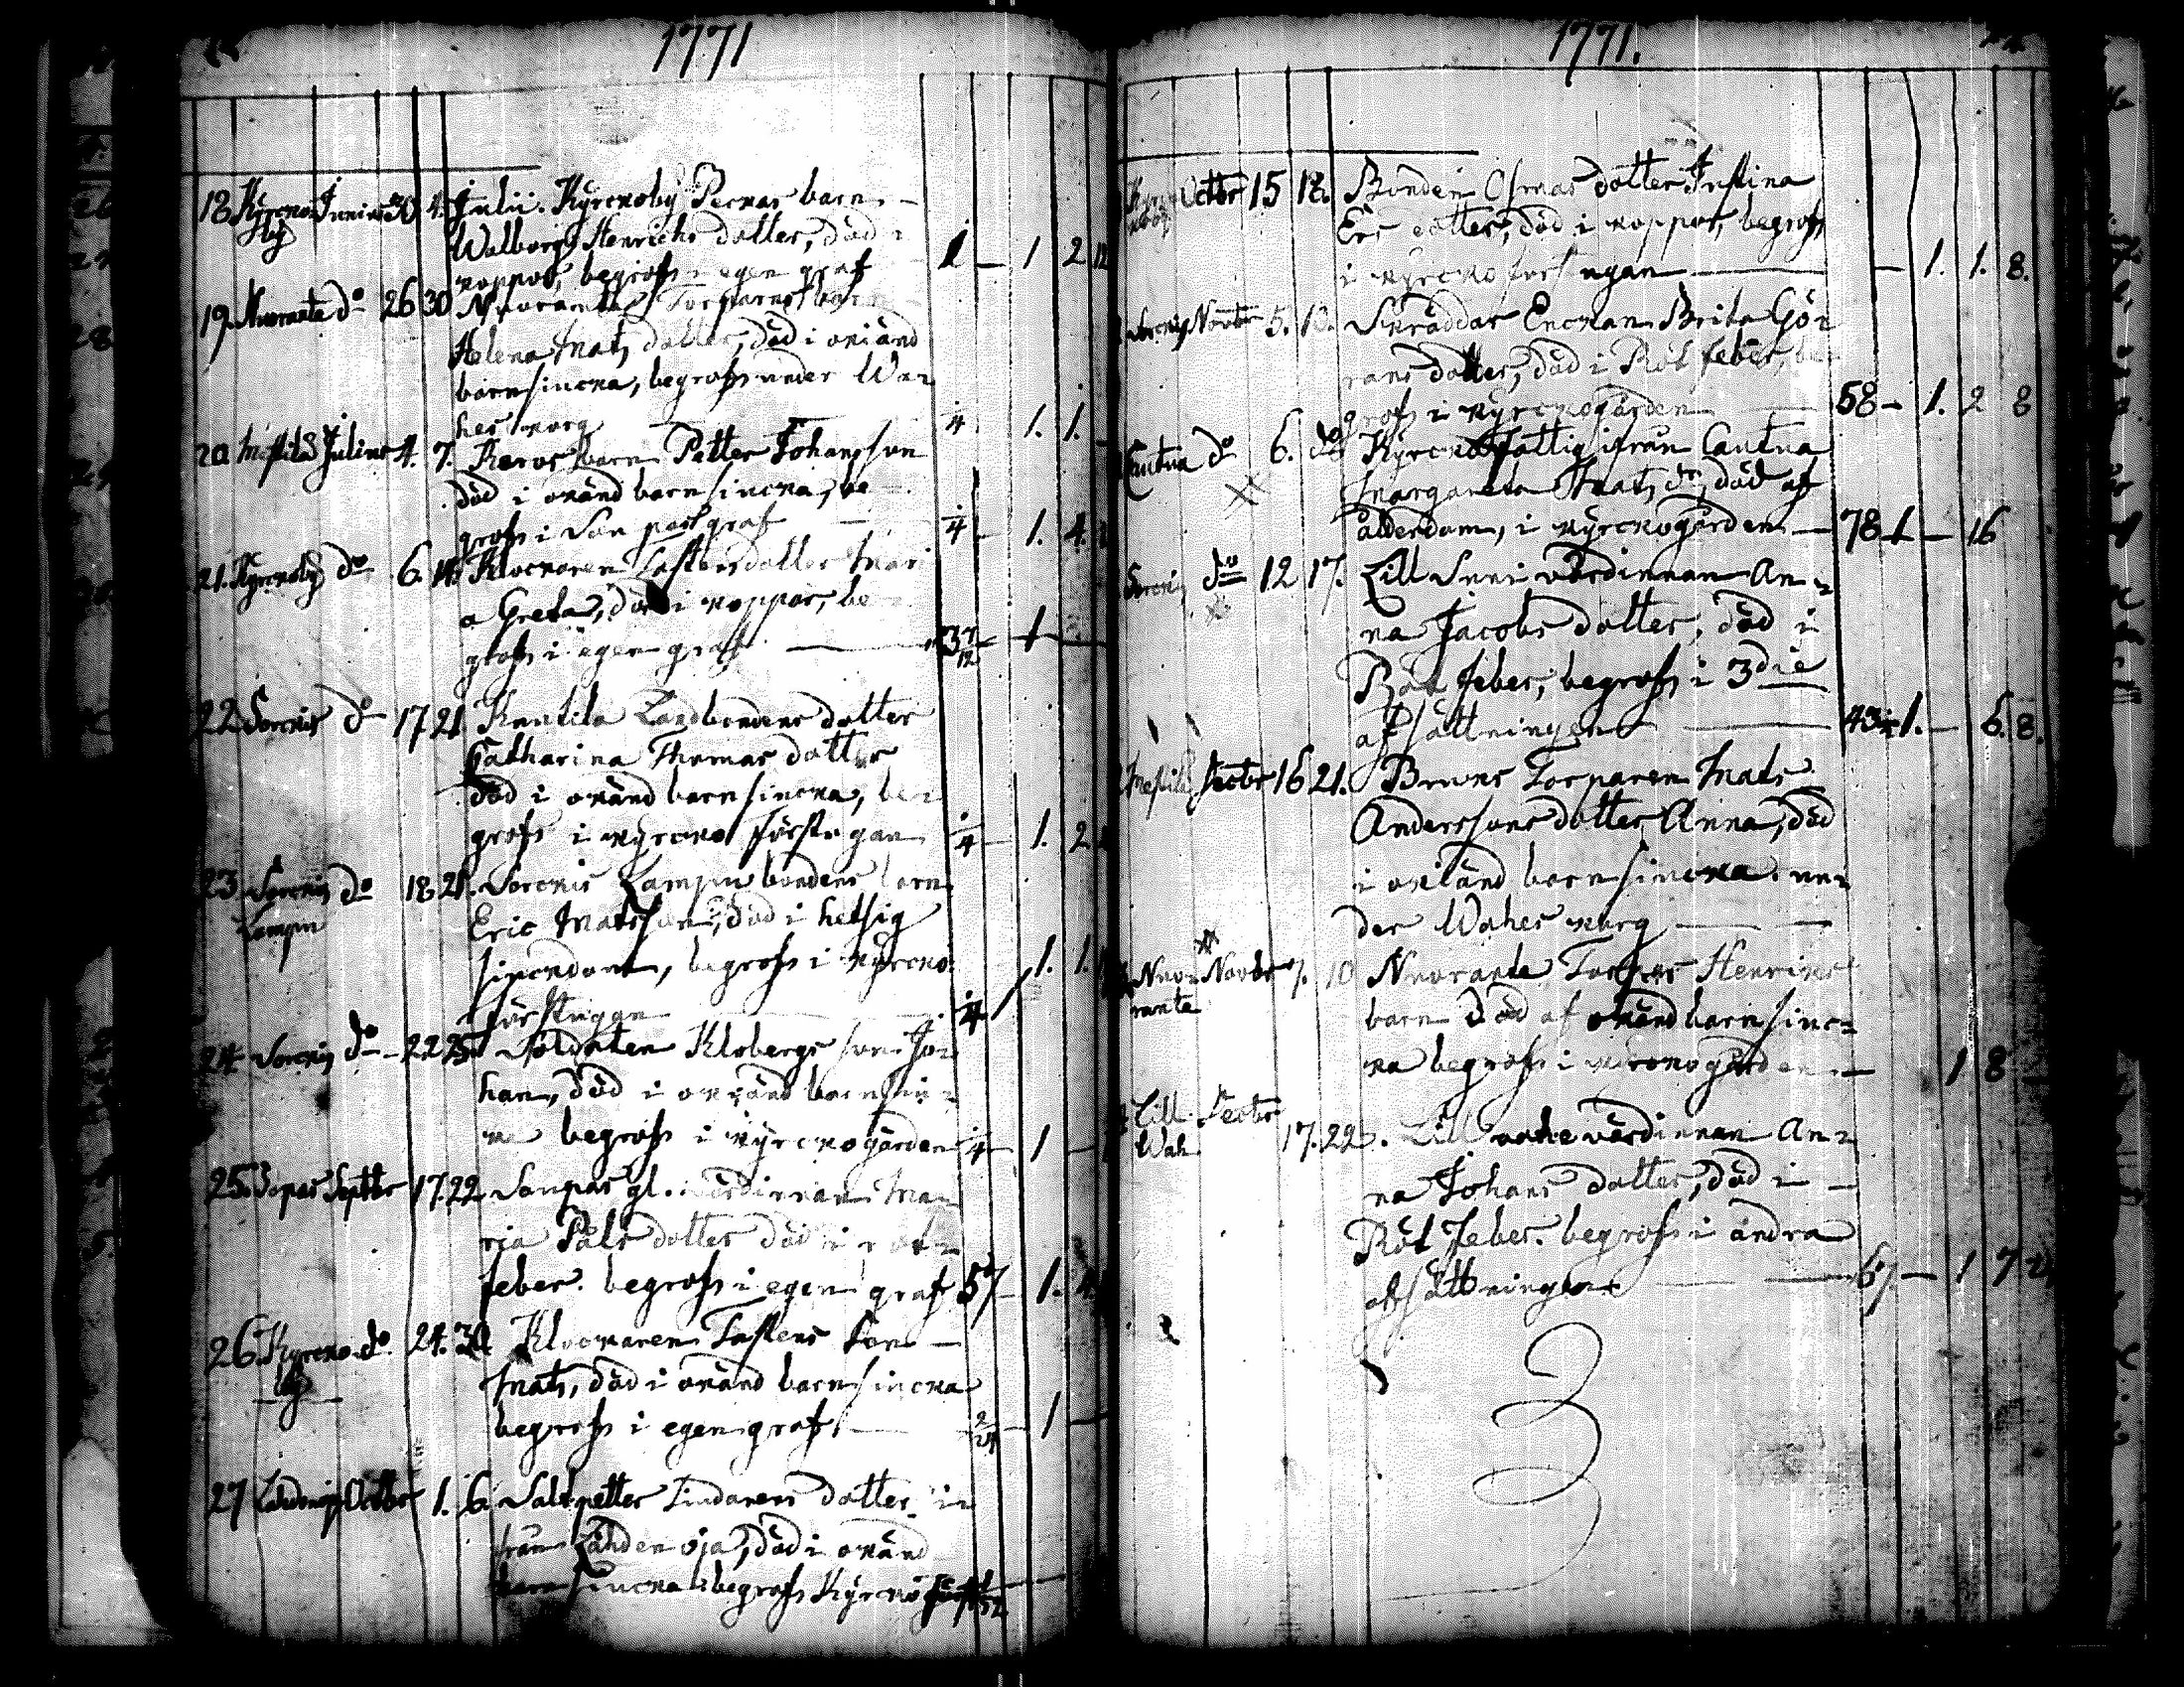 1771
18 Kyrcko Junius 30 4. Julii. Kyrckoby Peckas barn
by Walborg Henrichs dotter, död i
koppor, begrofs i egen graf 1 — 1 2
19. Nuoranta do 26 30 Nuoranta Torparns barn
Helena Mats dotter, död i okiänd
barnsiucka, begrofs under Wa-
hes korg 1/4 1. 1.
20 Mestilä Julius 4. 7. Keros barn Petter Johansson
död i okänd barnsiucka, be-
grofs i Son pars graf 1/4 — 1. 4.
21. Kyrckoby do 6. 14. Klockaren Tastens dotter Mari
a Greta, död i koppor, be-
grofs i egen graf — 3 7/12 — 1 —
22 Sorckis do 17 21. Knutila Landbondens dotter
Catharina Thomas dotter
död i okänd barnsiucka, be-
grofs i kyrcko förstugan 1/4 — 1. 2
23 Sorckis do 18 21. Sorckis Lampu bondens barn
Lampu Eric Matsson, död i hetsig
siuckdom, begrofs i kyrcko 1. 1.
förstugan 1/4
24 Sorckis do 22 25. Soldaten Klobergs son Jo-
han, död i okiänd barnsiu-
ka begrofs i kyrckogården 1/4 — 1 —
25. Sopas Septbr 17. 22 Soupas gl. värdinnan Ma-
ria Påls dotter död i röt-
feber. begrofs i egen graf 57 — 1. 4
26 Kyrcko do 24. 30 Klockaren Tastens Son —
by Mats, död i okänd barnsiucka
begrofs i egen graf. — 2/24 — 1 —
27 Lähdenoja Octobr 1. 6. Saltpetter Siudarens dotter i-
från Lähdenoja, död i okänd
barnsiucka begrofs Kyrcko förs
1771.
Octbr 15 18. Bonden Osmas dotter Justina
Ers dotter, död i koppor, begrofs
i kyrcko förstugan — — 1. 1. 8.
Sorckis Novbr 5. 10. Skräddar Enckan Brita Gö-
rans dotter, död i Röt feber, be-
grofs i kyrckogården 58 — 1. 2 8
Cautua do 6. do Kyrcko Fattig ifrån Cautua
Margareta Mats dr, död af
ålderdom, i kyrckogården — 78 1 — 16
Sorckis do 12 17. Lill Snni värdinnan An-
na Jacobs dotter, död i
Röt feber, begrofs i 3die
afsättningen — 43 1. — 6. 8.
Mestilä Decbr 16 21. Bruns Torparen Mats
Anderssons dotter Anna, död
i okiänd barnsiucka. un-
der Wahes korg —
Nuo- Novbr 7. 10 Nuoranta Torpars Henrikes
ranta barn död af okänd barnsiuc-
ka begrofs i kyrckogården — 1 8
Lill Decbr 17. 22. Lill wahe värdinnan An-
Wah na Johans dotter, död i —
Röt feber. begrofs i andra
afsättningen — 67. — 1 7 2